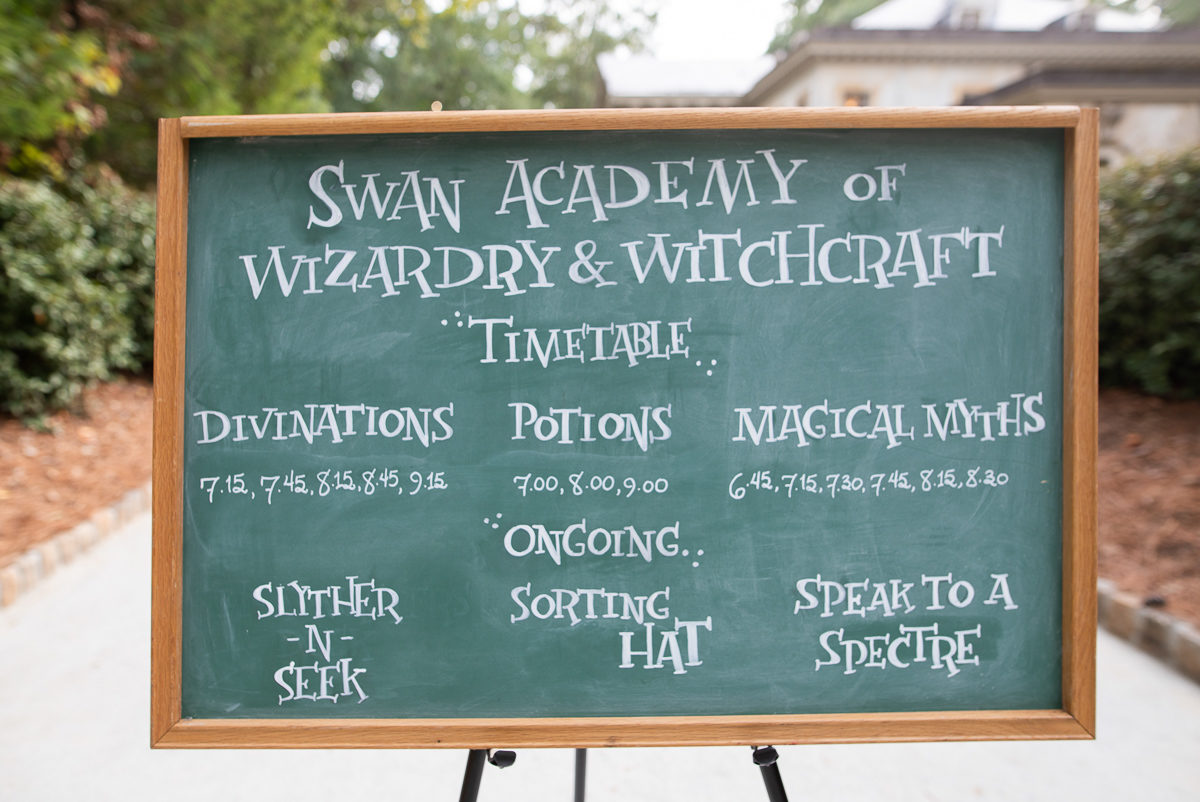 SWAN ACADEMY OF
WIZARDRY & WITCHCRAFT
TIMETABLE
DIVINATIONS POTIONS MAGICAL MYTHS
7.15, 7.45, 8.15, 8.45, 9.15 7.00, 8.00, 9.00 6.45, 7.15, 7.30, 7.45, 8.15, 8.30
ONGOING..
SLYTHER
-N-
SEEK
SORTING
HAT
SPEAK TO A
SPECTRE